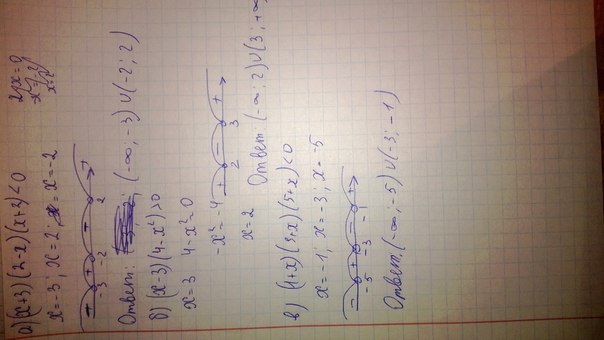 а) (x+3)(2-x)(x+2)<0
2-x=0
x=-3; x=2; x=-2
-3 -2 2
Ответ: (-∞; -3) ∪ (-2; 2)
б) (x-3)(4-x²)>0
x=3 4-x²=0
-x²=-4
x=2
+ - +
2 3
Ответ (-∞; 2) ∪ (3; +∞
в) (1+x)(3+x)(5+x)<0
x=-1; x=-3; x=-5
- + - +
-5 -3 -1
Ответ, (-∞; -5) ∪ (-3; -1)